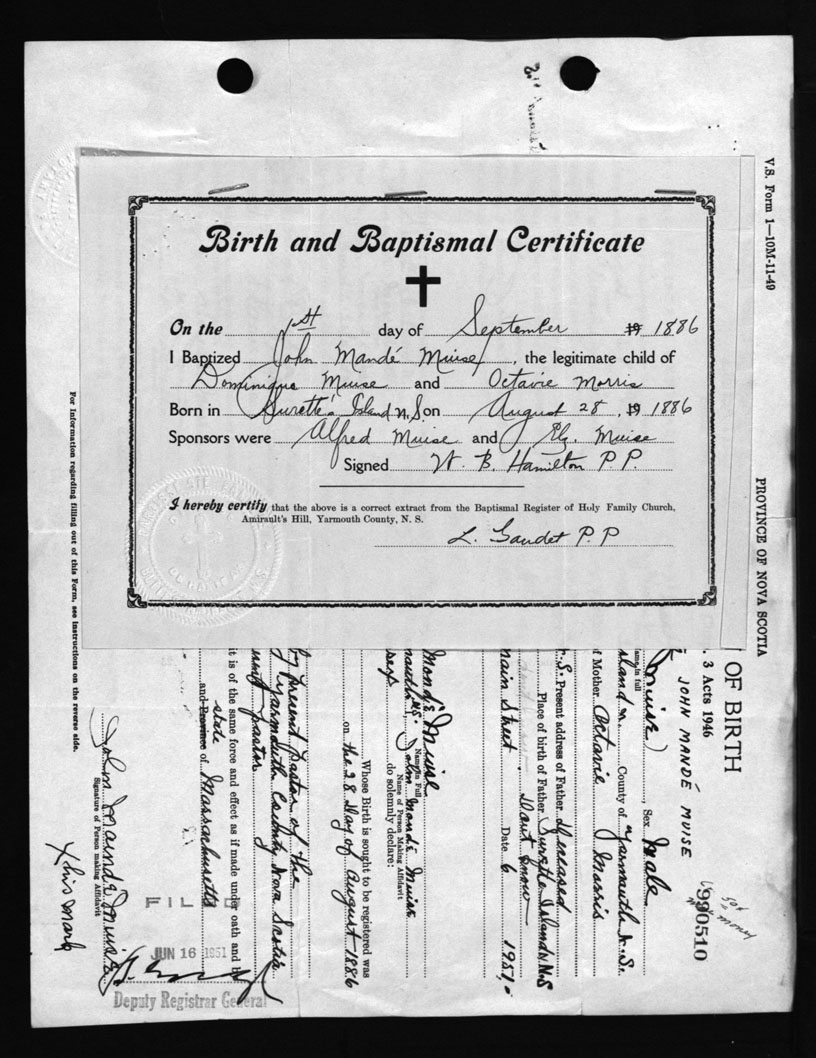 Birth and Baptismal Certificate
On the 1st day of September 19 1886
I Baptized John Mandé Muise, the legitimate child of
Dominique Muise and Octavie Morris
Born in Surette's Island N.S on August 28, 19 1886
Sponsors were Alfred Muise and Elz. Muise
Signed W. B. Hamilton P.P.
I hereby certify that the above is a correct extract from the Baptismal Register of Holy Family Church,
Amirault's Hill, Yarmouth County, N. S.
L. Gaudet P.P
V.S. Form 1—10M-11-49
PROVINCE OF NOVA SCOTIA
OF BIRTH
. 3 Acts 1946
JOHN MANDÉ MUISE
990510
Muise, Sex Male
County of Yarmouth N.S.
f Mother Octavie Morris
Present address of Father Deceased
Place of birth of Father Surette Island N.S
Dont know
main Street Date 6 1951
Mondé Muise
Name in Full
John Mondé Muise
Name of Person Making Affidavit
do solemnly declare:
Whose Birth is sought to be registered was
on the 28 Day of August 1886
present pastor of the
Yarmouth County Nova Scotia
pastor
it is of the same force and effect as if made under oath and
state
and Province of Massachusetts
John Maindé Muise
Signature of Person making Affidavit
X his mark
FILED
JUN 16 1951
Deputy Registrar General
For Information regarding filling out of this Form, see Instructions on the reverse side.